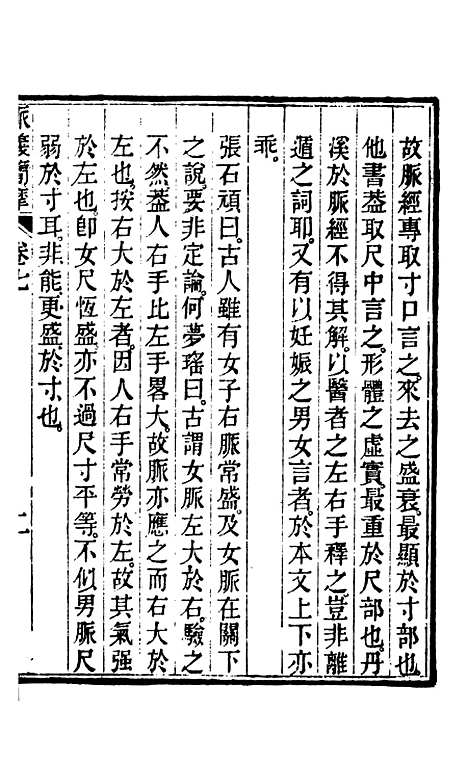 故脈經專取寸口言之。來去之盛衰。最顯於寸部也。
他書葢取尺中言之。形體之虛實。最重於尺部也。丹
溪於脈經不得其解。以醫者之左右手釋之。豈非離
遁之詞耶。又有以妊娠之男女言者。於本文上下亦
乖。
張石頑曰。古人雖有女子右脈常盛。及女脈在關下
之說。要非定論。何夢瑤曰。古謂女脈左大於右。驗之
不然。葢人右手比左手畧大。故脈亦應之而右大於
左也。按右大於左者。因人右手常勞於左。故其氣强
於左也。卽女尺恆盛。亦不過尺寸平等。不似男脈尺
弱於寸耳。非能更盛於寸也。
卷七